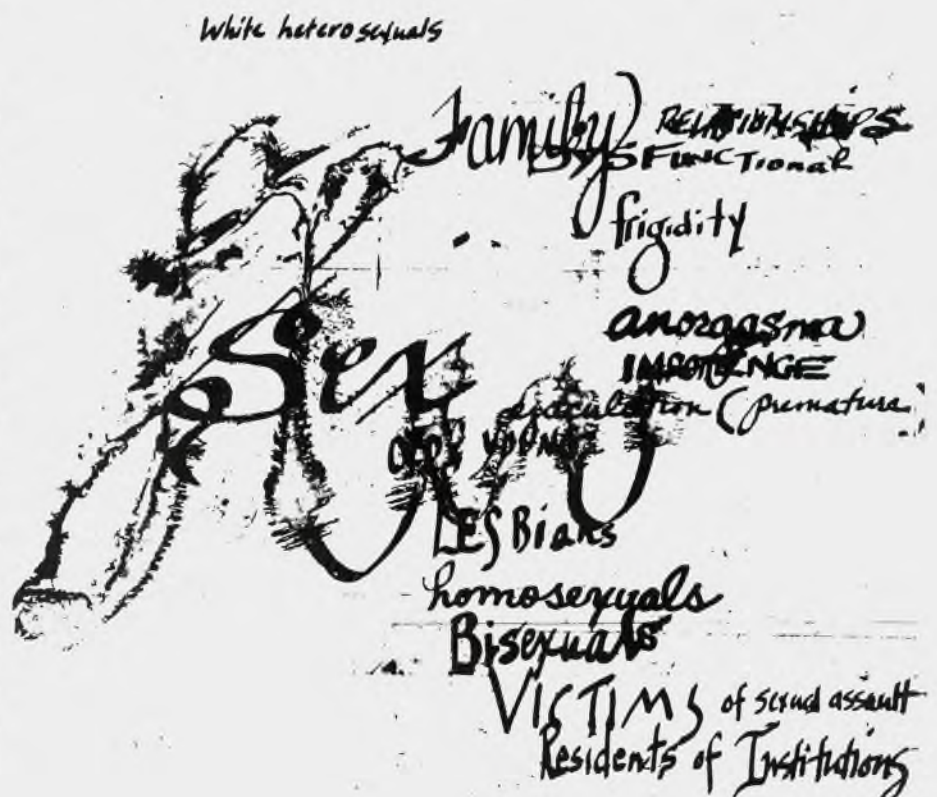 White heterosexuals
Family RELATIONSHIPS
DYSFUNCTIONAL
frigidity
Sex
anorgasma
IMPOTENCE
ejaculation (premature
LESBians
homosexuals
Bisexuals
VICTIMS of sexual assault
Residents of Institutions